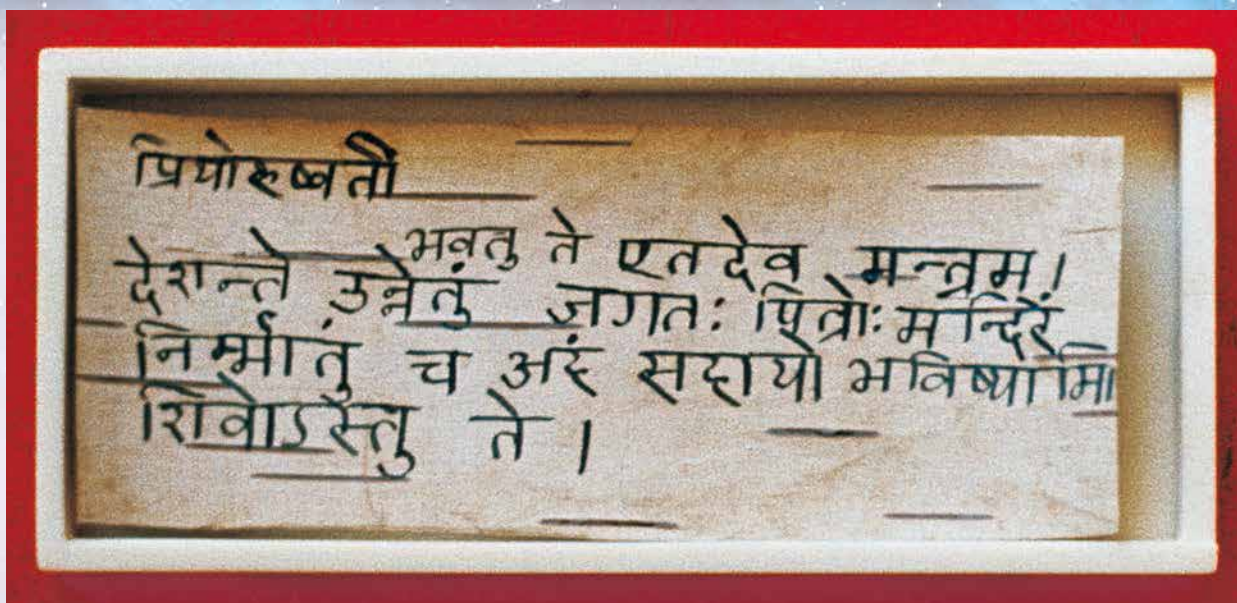 प्रियोरुष्वती
भवतु ते एतदेव मन्त्रम।
देशान्ते उन्नेतुं जगतः पित्रोः मन्दिरं
निर्म्मातुं च अहं सहायो भविष्यामि
शिवोऽस्तु ते।